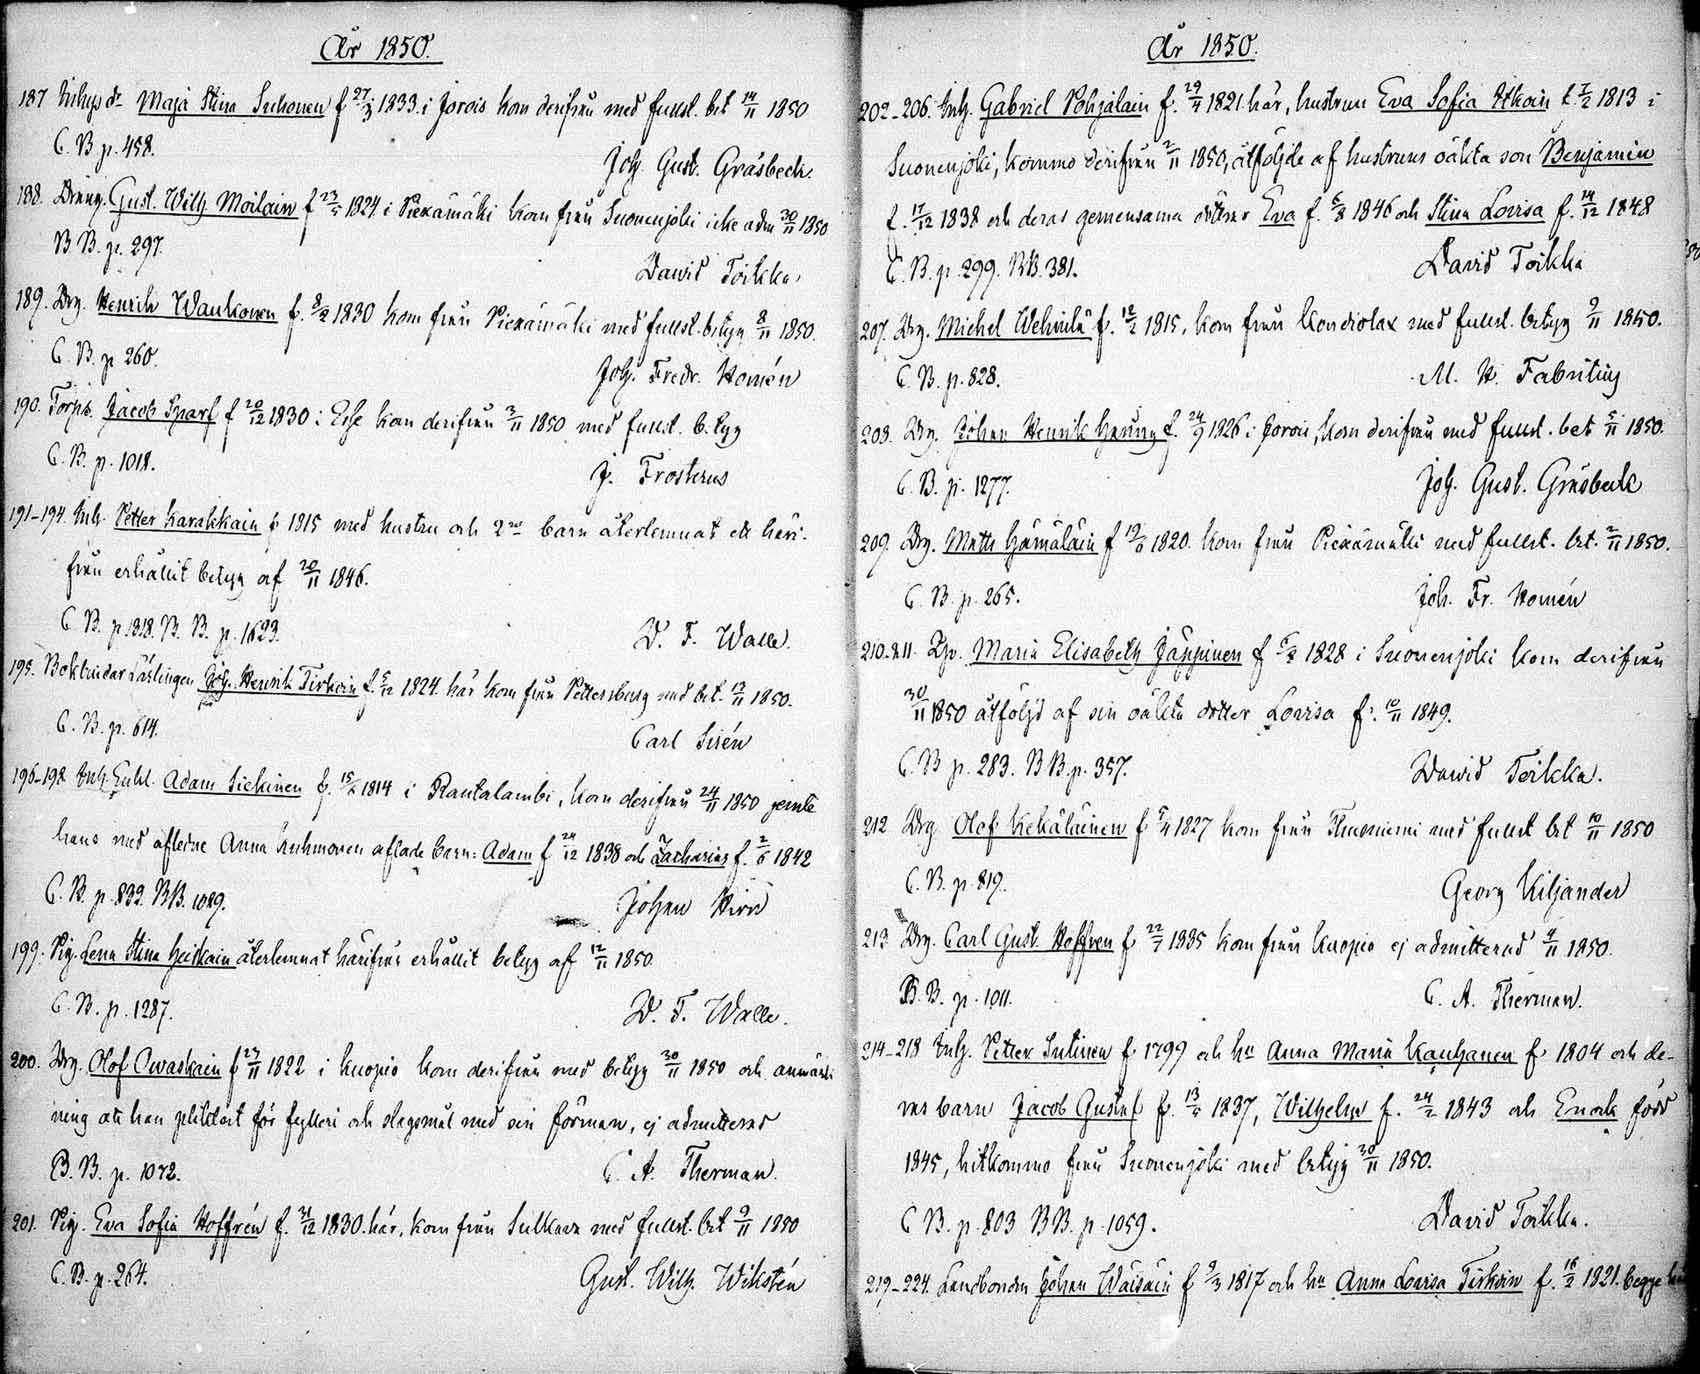 År 1850.
187 Inhys dr Maja Stina Suhonen f 27/3 1833 i Jorois kom derifrån med fullst. bet 14/11 1850
C. B. p. 458.
Joh. Gust. Gråsbeck.
188. Dreng. Gust. Wilh. Moilain f 23/5 1824 i Piexämäki kom från Suonenjoki icke adm 30/11 1850
B B. p. 297.
David Toikka,
189. Drg. Henrik Waukonen f. 8/2 1830 kom från Piexämäki med fullst. betyg 8/11 1850.
C. B. p 260.
Joh. Fredr. Homén
190. Torpk. Jacob f 20/12 1830 i Esse kom derifrån 3/11 1850 med fullst. betyg
C. B. p. 1018.
J. Frosterus
191–194. Inh. Petter Karakkain f 1815 med hustru och 2ne barn återlemnat ett häri-
från erhållit betyg af 20/11 1846.
C. B. p. 1318. B. B. p. 1623.
W. F. Walle.
195. Bokbindar Lärlingen Joh. Henrik Tirkoin f. 5/12 1824. här kom från Pettersburg med bet. 13/11 1850.
C. B. p. 614.
Carl Sirén
196–198 Inh. Enkl. Adam Siekinen f. 15/2 1814 i Rautalambi, kom derifrån 24/11 1850 jemte
hans med aflidne Anna Huhmonen aflade barn: Adam f 24/12 1838 och Zacharias f. 2/6 1842
C. B. p. 832. BB. 1089.
Johan Hirn
199. Pig. Lena Stina Heiskain återlemnat härifrån erhållit betyg af 12/11 1850.
C. B. p. 1287.
W. F. Walle.
200. Drg. Olof Owaskain f 27/11 1822 i Kuopio kom derifrån med betyg 30/11 1850 och anmärk-
ning att han pliktat för fylleri och slagsmål med sin förman, ej admitterad
B. B. p. 1072.
C. A. Therman.
201. Pig. Eva Sofia Hoffrén f. 31/12 1830. här, kom från Sulkava med fullst. bet 9/11 1850
C. B. p. 264.
Gust. Wilh. Wikstén
År 1850.
202–206. Inh. Gabriel Pohjalain f. 29/4 1821. här, hustrun Eva Sofia Itkoin f. 7/2 1813 i
Suonenjoki, kommo derifrån 2/11 1850, åtföljde af hustruns oäkta son Benjamin
f. 17/12 1838 och deras gemensama döttrar Eva f. 5/8 1846 och Stina Lovisa f. 14/12 1848
C. B. p. 299. BB. 381.
David Toikka
207. Drg. Michel f. 12/2 1815, kom från Kondiolax med fullst. betyg 9/11 1850.
C. B. p. 828.
M. H. Fabritius
208. Drg. Johan Henrik f. 24/9 1826 i Jorois, kom derifrån med fullst. bet 5/11 1850.
C. B. p. 1277.
Joh. Gust. Gråsbeck
209. Drg. Matts Hämäläin f 19/6 1820. kom från Piexämäki med fullst. bet. 2/11 1850.
C. B. p. 265.
Joh. Fr. Homén
210–211. Maria Elisabeth Jäppinen f 1828 i Suonenjoki kom derifrån
30/11 1850 åtföljd af sin oäkta dotter Lovisa f. 10/11 1849.
C. B p. 283. BB. p. 357.
David Toikka.
212 Drg Olof Kekäläinen f 5/4 1827 kom från med fullst bet 10/11 1850
C. B. p. 819.
Georg Kiljander
213 Drg. Carl Gust. Hoffren f 22/7 1835 kom från Kuopio ej admitterad 4/11 1850.
B. B. p. 1011.
C. A. Therman.
214–218 Inh. Petter Sutinen f 1799 och hu Anna Maria Kauhanen f 1804 och de-
ras barn Jacob Gustaf f. 13/5 1837, Wilhelm f. 24/2 1843 och Enock född
1845, hitkommo från Suonenjoki med betyg 20/11 1850.
C B. p. 803 BB. p. 1059.
David Toikka.
219–224. Landbonden Johan Wäisäin f 9/3 1817 och hu Anna Lovisa Tirkoin f. 16/2 1821. begge här